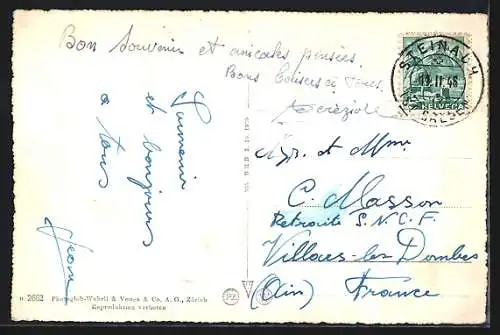 Bon Souvenir et amicales pensées.
Bons baisers à tous.
Souvenir
et bonjour
à tous
Jean
STEINACH
13.II.48
HELVETIA
Mr. et Mme
C. Masson
Retraité S.N.C.F.
Villars-les Dombes
(Ain) France
n. 2662 Photoglob-Wehrli & Vouga & Co. A. G., Zürich
Reproduktion verboten